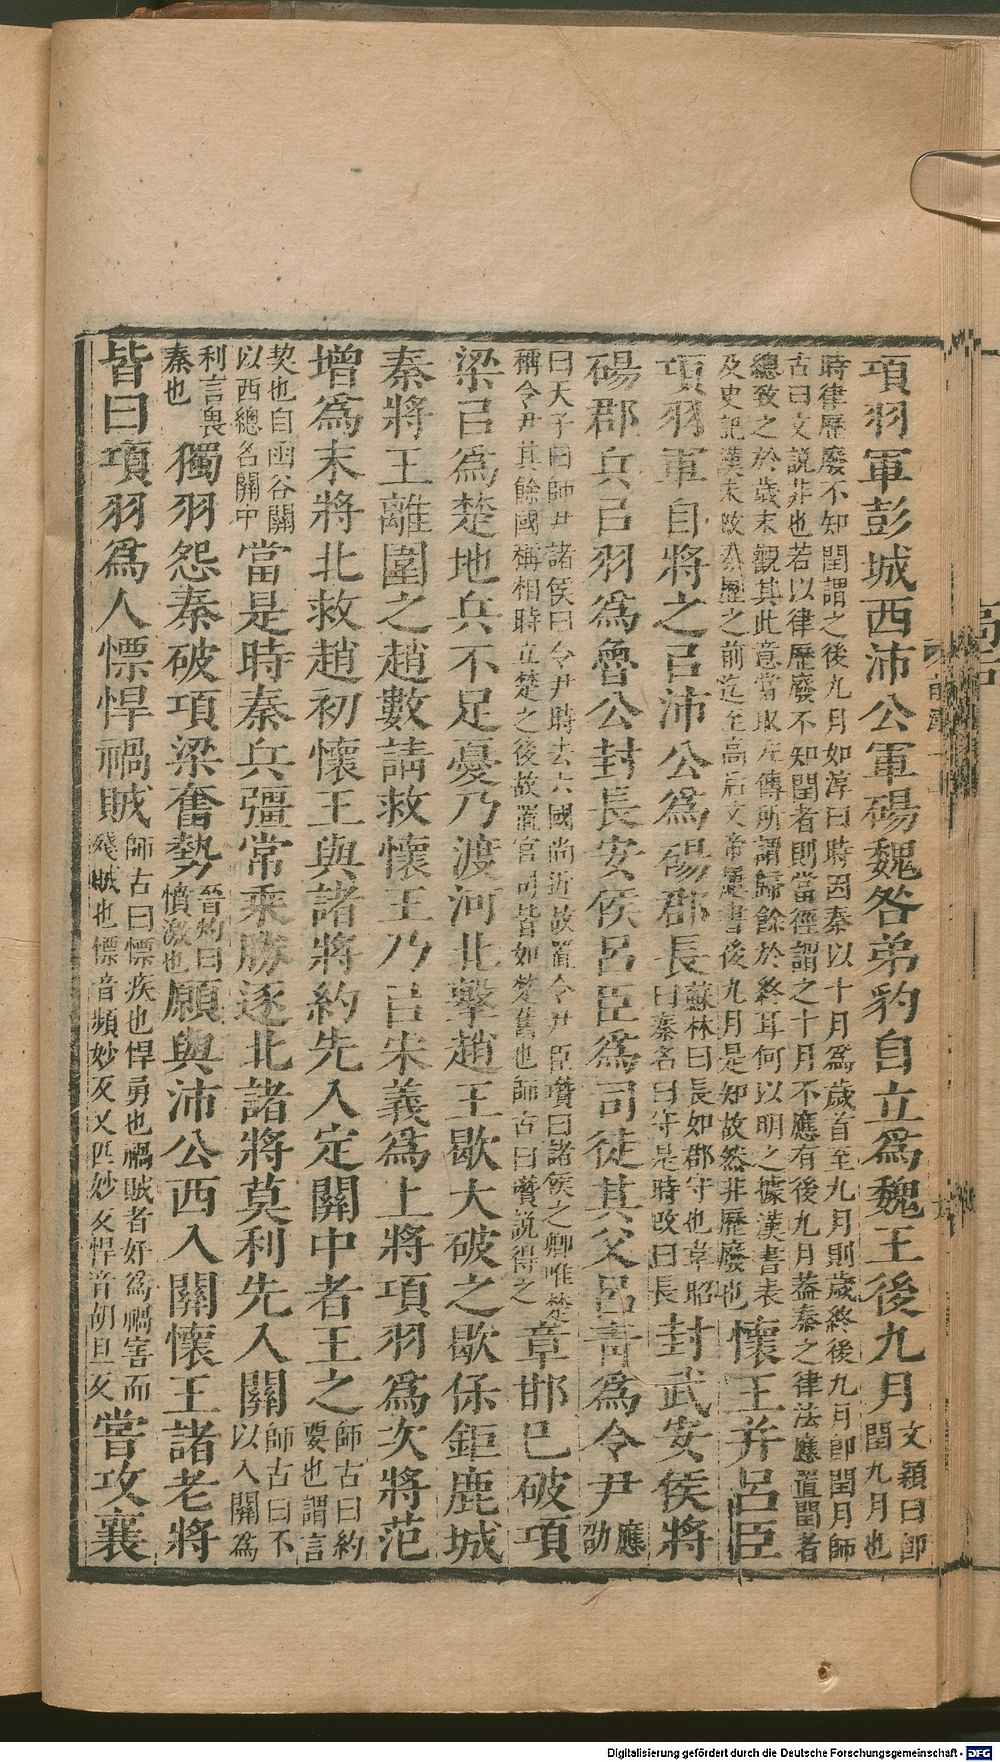 項羽軍彭城西沛公軍碭魏咎弟豹自立爲魏王後九月文穎曰卽閏九月也
時律歷廢不知閏謂之後九月如淳曰時因秦以十月爲歲首至九月則歲終後九月卽閏月師
古曰文說非也若以律歷廢不知閏者則當徑謂之十月不應有後九月葢秦之律法應置閏者
總致之於歲末觀其此意當取左傳所謂歸餘於終耳何以明之據漢書表
及史記漢未改秦歷之前迄至高后文帝屢書後九月是知故然非歷廢也懷王并呂臣
項羽軍自將之㠯沛公爲碭郡長蘇林曰長如郡守也韋昭曰秦名曰守是時改曰長封武安侯將
碭郡兵㠯羽爲魯公封長安侯呂臣爲司徒其父呂青爲令尹應劭
曰天子曰師尹諸侯曰令尹時去六國尚近故置令尹臣瓚曰諸侯之卿唯楚
稱令尹其餘國稱相時立楚之後故置官司皆如楚舊也師古曰瓚說得之章邯已破項
梁㠯爲楚地兵不足憂乃渡河北擊趙王歇大破之歇保鉅鹿城
秦將王離圍之趙數請救懷王乃㠯宋義爲上將項羽爲次將范
增爲末將北救趙初懷王與諸將約先入定關中者王之師古曰約要也謂言
契也自函谷關以西總名關中當是時秦兵彊常乘勝逐北諸將莫利先入關師古曰不以入關爲
利言畏秦也獨羽怨秦破項梁奮勢晉灼曰憤激也願與沛公西入關懷王諸老將
皆曰項羽爲人慓悍禍賊師古曰慓疾也悍勇也禍賊者好爲禍害而殘賊也慓音頻妙反又匹妙反悍音胡旦反嘗攻襄
Digitalisierung gefördert durch die Deutsche Forschungsgemeinschaft - DFG